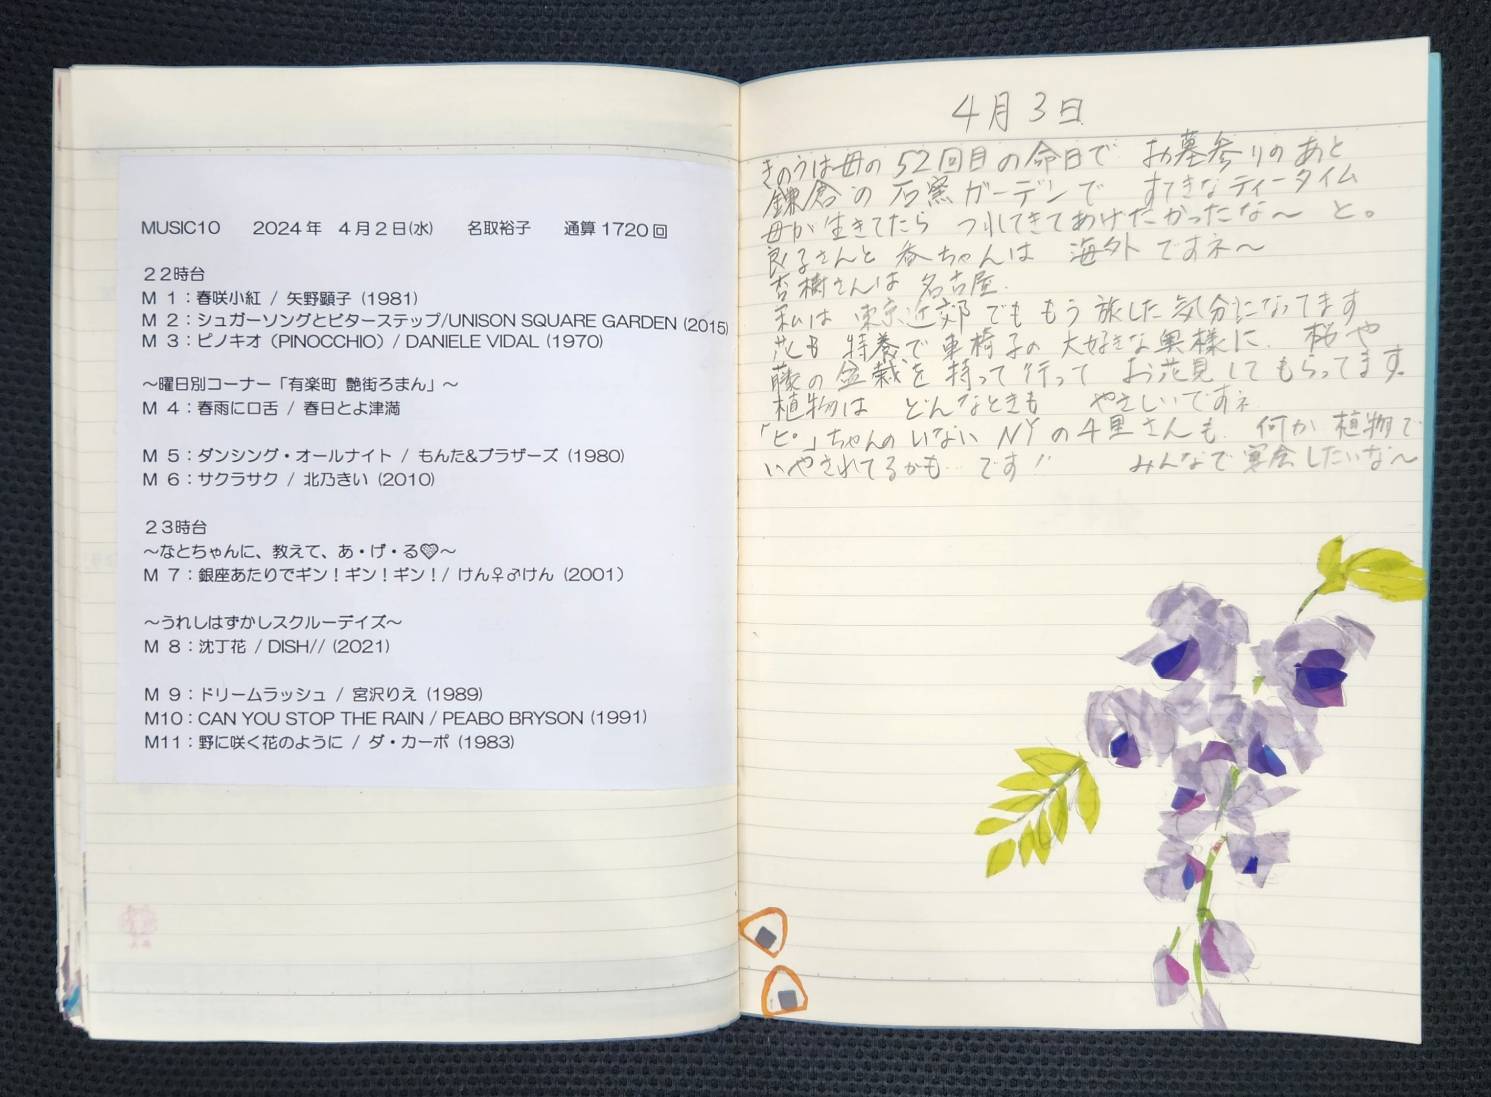 MUSIC10 2024年 4月2日(水) 名取裕子 通算1720回
22時台
M 1:春咲小紅 / 矢野顕子 (1981)
M 2:シュガーソングとビターステップ/UNISON SQUARE GARDEN (2015)
M 3:ピノキオ(PINOCCHIO)/ DANIELE VIDAL (1970)
~曜日別コーナー「有楽町 艶街ろまん」~
M 4:春雨に口舌 / 春日とよ津満
M 5:ダンシング・オールナイト / もんた&ブラザーズ (1980)
M 6:サクラサク / 北乃きい (2010)
23時台
~なとちゃんに、教えて、あ・げ・る♡~
M 7:銀座あたりでギン!ギン!ギン!/ けん♀♂けん (2001)
~うれしはずかしスクルーデイズ~
M 8:沈丁花 / DISH// (2021)
M 9:ドリームラッシュ / 宮沢りえ (1989)
M10:CAN YOU STOP THE RAIN / PEABO BRYSON (1991)
M11:野に咲く花のように / ダ・カーポ (1983)
4月3日
きのうは母の52回目の命日で お墓参りのあと
鎌倉の石窯ガーデンで すてきなティータイム
母が生きてたら つれてきてあげたかったな~ と。
良子さんと香ちゃんは 海外ですネ~
杏樹さんは名古屋.
私は東京近郊でも もう旅した気分になってます
花も特養で車椅子の大好きな奥様に. 桜や
藤の盆栽を持って行って お花見してもらってます。
植物は どんなときも やさしいですネ
「ピ」ちゃんのいないNYの千里さんも. 何か植物で
いやされてるかも…です!! みんなで宴会したいな~